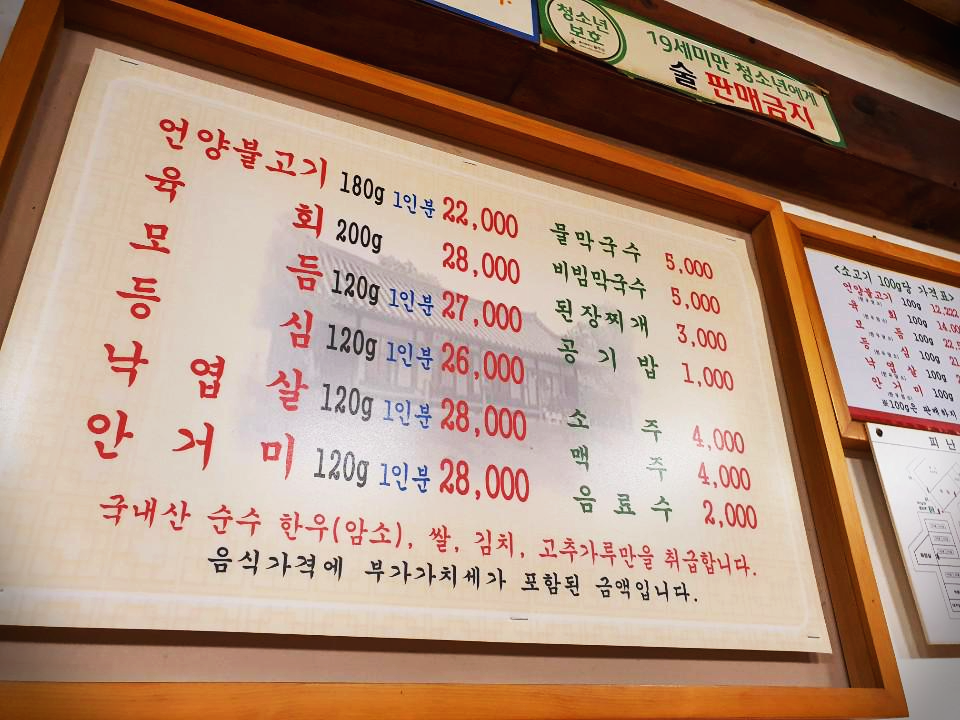 청소년
보호
19세미만 청소년에게
술 판매금지
언양불고기 180g 1인분 22,000
육 회 200g 28,000
모 듬 120g 1인분 27,000
등 심 120g 1인분 26,000
낙 엽 살 120g 1인분 28,000
안 거 미 120g 1인분 28,000
물막국수 5,000
비빔막국수 5,000
된장찌개 3,000
공 기 밥 1,000
소 주 4,000
맥 주 4,000
음 료 수 2,000
국내산 순수 한우(암소), 쌀, 김치, 고추가루만을 취급합니다.
음식가격에 부가가치세가 포함된 금액입니다.
<소고기 100g당 가격표>
언양불고기 100g
육 회 100g
모 듬 100g
등 심 100g
낙 엽 살 100g
안 거 미 100g
※100g은 판매하지
피 난